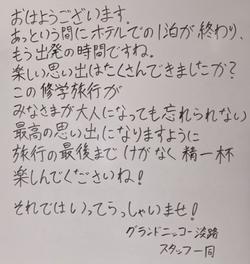 おはようございます.
あっという間にホテルでの1泊が終わり、
もう出発の時間ですね.
楽しい思い出はたくさんできましたか?
この修学旅行が
みなさまが大人になっても忘れられない
最高の思い出になりますように
旅行の最後まで けがなく 精一杯
楽しんでくださいね!
それでは いってらっしゃいませ!
グランドニッコー淡路
スタッフ一同